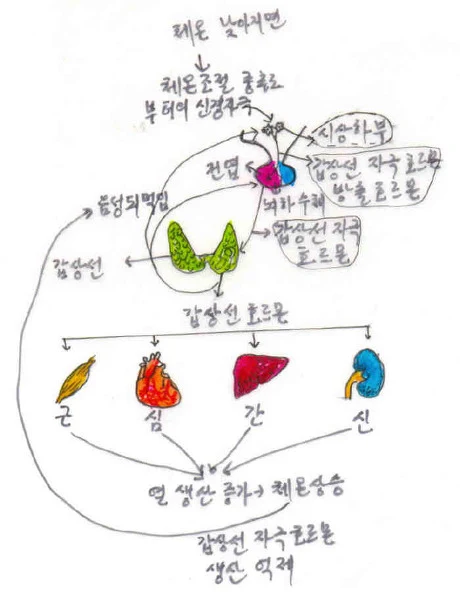 체온 낮아지면
체온조절 중추로
부터의 신경자극
시상하부
전엽
갑상선 자극 호르몬
방출 호르몬
뇌하수체
음성되먹임
갑상선 자극
호르몬
갑상선
갑상선 호르몬
근
심
간
신
열 생산 증가→체온상승
갑상선 자극호르몬
생산 억제